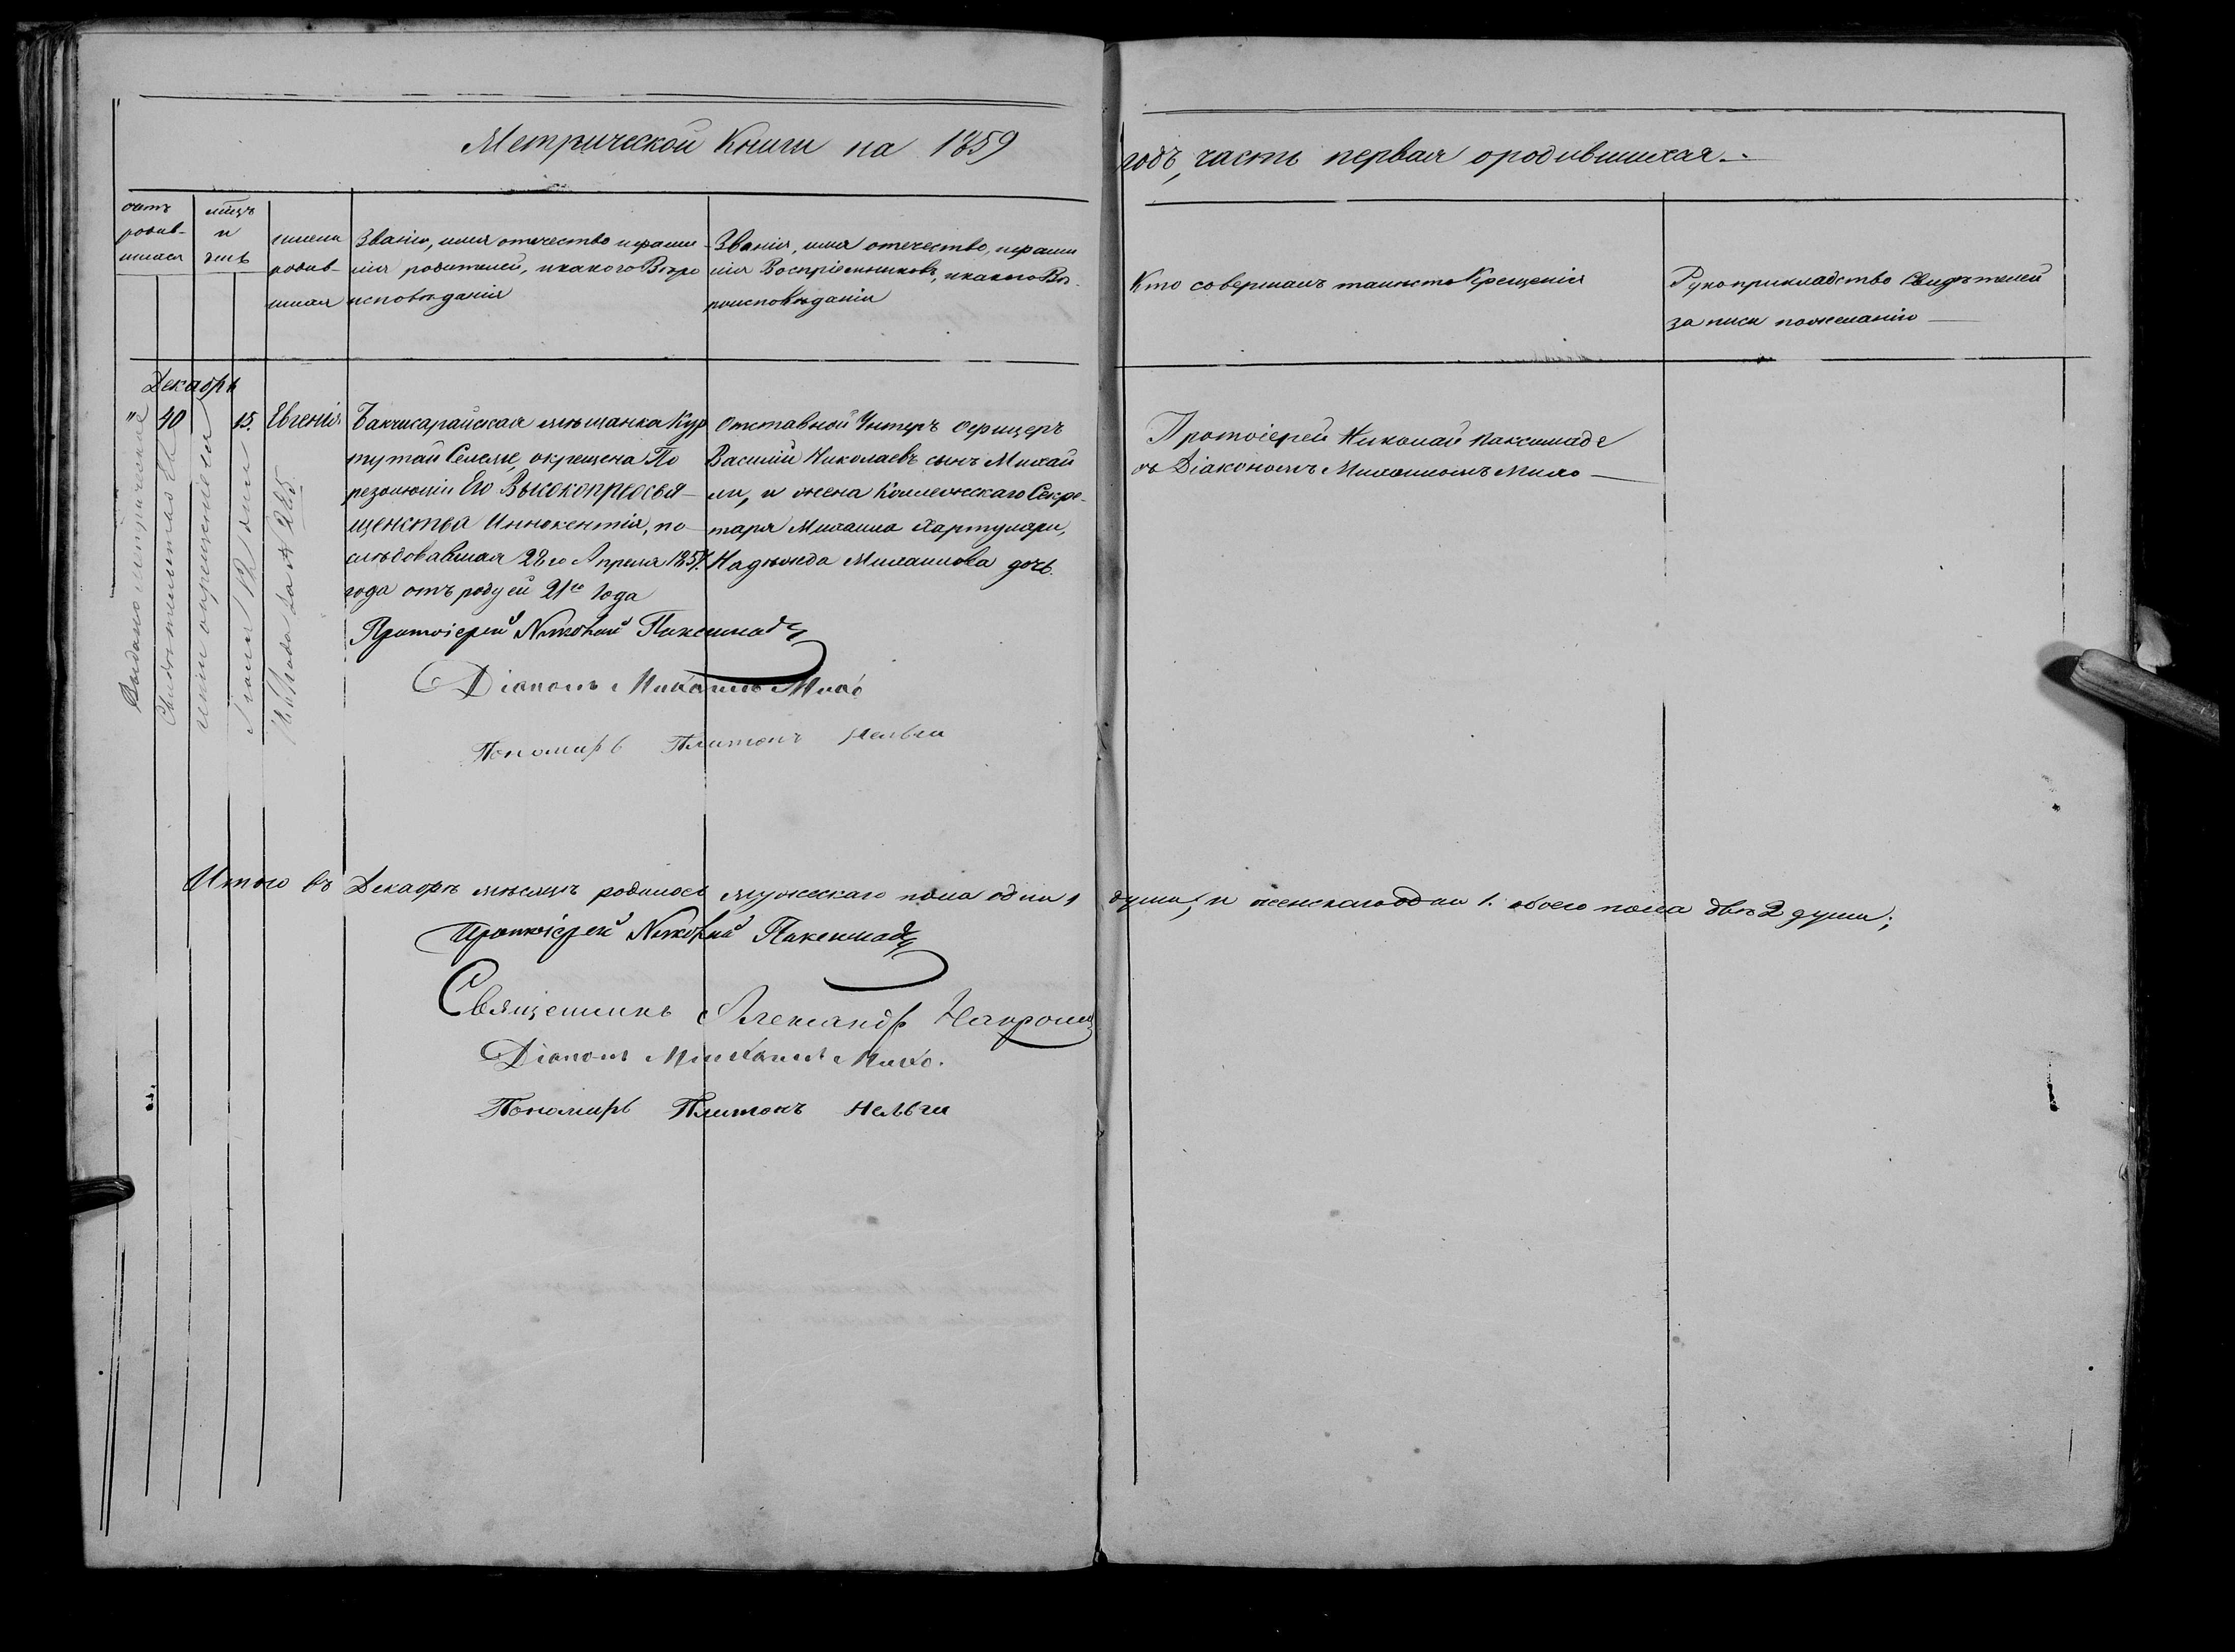 Метрической Книги на 1859
годъ, часть первая ородившихся
счетъ
родив-
шихся
мѣцъ
и
день
имена
родив-
шихся
Званіе, имя отечество и фами-
лія родителей, и какого Вѣро
исповѣданія
Званія, имя отечество, и фами
лія Воспріемниковъ, и какого Вѣ-
роисповѣданія
Кто совершалъ таинство Крещенія
Рукоприкладство Свидѣтелей
записи по желанію
Декабрь
" 40 15. Евгенія
Бакчисарайская мѣщанка Кур
тутай Селеме, окрещена По
резолюціи Его Высокопреосвя-
щенства Иннокентія, по
слѣдовавшая 28го Апреля 1857.
года отъ роду ей 21го года
Отставной Унтеръ Офицеръ
Василій Николаевъ сынъ Михай
ли, и жена Коллежскаго Секре-
таря Михаила Хартулари,
Надежда Михаилова дочь.
Протоіерей Николай Паксимаде
съ Діакономъ Михаиломъ Михо
Протоіерей Николай Паксимаде
Діаконъ Михаилъ Михо
Пономарь Платонъ
Выдано метрическое
Свидѣтельство
1859 года за № 285
Итого въ Декабрѣ мѣсяцѣ родилось мужескаго пола одна 1 душа, и женскаго одна 1. обоего пола двѣ 2 души;
Протоіерей Николай Паксимаде
Священникъ Александръ
Діаконъ Михаилъ Михо.
Пономарь Платонъ